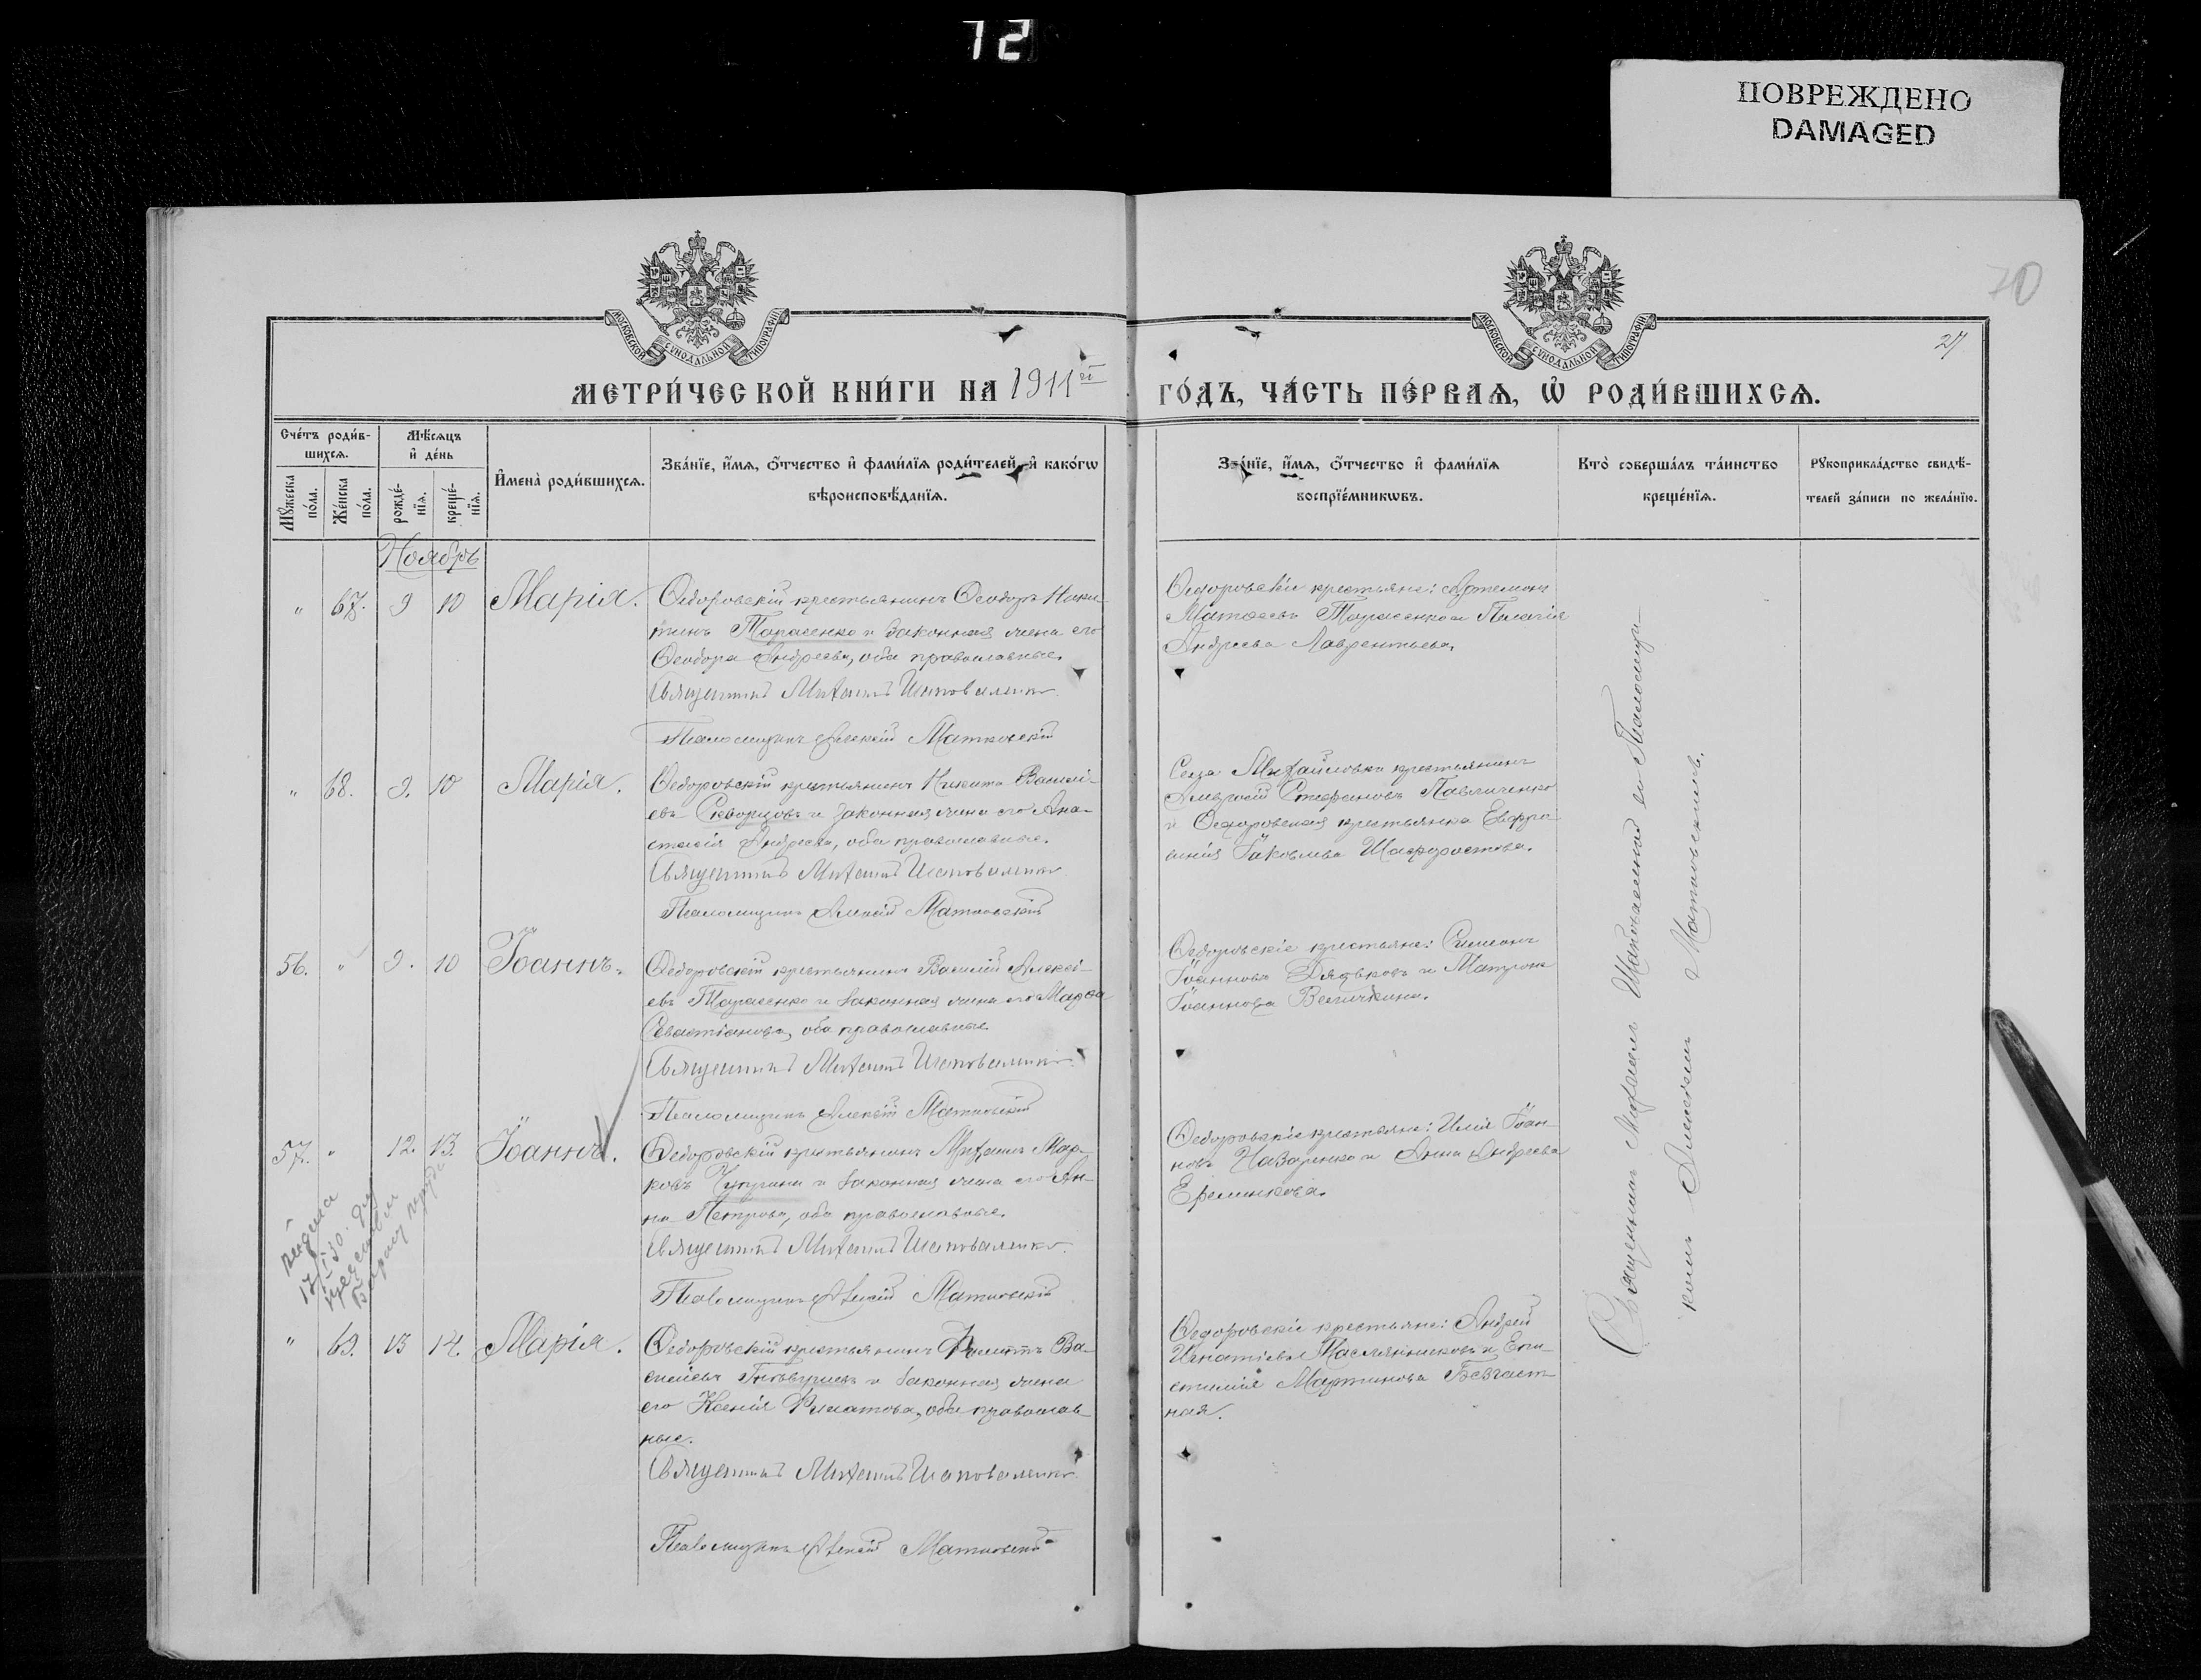 72
ПОВРЕЖДЕНО
DAMAGED
70
27
МОСКОВСКОЙ СѴНОДАЛЬНОЙ ТИПОГРАФІИ
МОСКОВСКОЙ СѴНОДАЛЬНОЙ ТИПОГРАФІИ
МЕТРИ́ЧЕСКОЙ КНИ́ГИ НА 1911й ГО́ДЪ, ЧА́СТЬ ПЕ́РВАѦ, Ѡ҆ РОДИ́ВШИХСѦ.
Сче́тъ роди́в-
шихсѧ.
Мꙋ́жеска по́ла.
Же́нска по́ла.
Мѣ́сѧцъ
и҆ де́нь
рожде́-
нїѧ.
креще́-
нїѧ.
И҆мена̀ роди́вшихсѧ.
Зва́нїе, и҆́мѧ, ѻ҆́тчество и҆ фами́лїѧ роди́телей, и҆ како́гѡ
вѣроисповѣ́данїѧ.
Зва́нїе, и҆́мѧ, ѻ҆́тчество и҆ фами́лїѧ
воспрїе́мникѡвъ.
Кто̀ соверша́лъ та́инство
креще́нїѧ.
Рꙋкоприкла́дство свидѣ́-
телей за́писи по жела́нїю.
Ноябрь
" 67. 9 10 Марія.
Ѳедоровскій крестьянинъ Ѳеодоръ Ники-
тинъ Тарасенко и законная жена его
Ѳеодора Андреева, оба православные.
Священникъ Михаилъ Шаповаленко
Псаломщикъ Алексій Матковскій
Ѳедоровскіе крестьяне: Артемонъ
Матѳеевъ Тарасенко и Пелагія
Андреева Лаврентьева.
" 68. 9. 10 Марія.
Ѳедоровскій крестьянинъ Никита Василі-
евъ Скворцовъ и законная жена его Ана-
стасія Андреева, оба православные.
Священникъ Михаилъ Шаповаленко
Псаломщикъ Алексій Матковскій
Села Михайловки крестьянинъ
Амвросій Стефановъ Павличенко
и Ѳедоровская крестьянка Евфро-
синія Іаковлева Шафоростова.
56. " 9. 10 Іоаннъ.
Ѳедоровскій крестьянинъ Василій Алексі-
евъ Тарасенко и законная жена его Марѳа
Севастіанова, оба православные
Священникъ Михаилъ Шаповаленко
Псаломщикъ Алексій Матковскій
Ѳедоровскіе крестьяне: Симеонъ
Іоанновъ Дядьковъ и Матрона
Іоаннова Величкина.
57. " 12. 13. Іоаннъ.
Ѳедоровскій крестьянинъ Михаилъ Мар-
ковъ Чуприна и законная жена его Ан-
на Петрова, оба православные.
Священникъ Михаилъ Шаповаленко
Псаломщикъ Алексій Матковскій
Ѳедоровскіе крестьяне: Илія Іоан-
новъ Назаренко и Анна Андреева
Ефименкова.
" 69. 13 14. Марія.
Ѳедоровскій крестьянинъ Ва-
силіевъ и законная жена
его Ксенія Филатова, оба православ-
ные.
Священникъ Михаилъ Шаповаленко
Псаломщикъ Алексій Матковскій
Ѳедоровскіе крестьяне: Андрей
Игнатіевъ Маслянниковъ и Епи-
стимія Мартинова Безчаст-
ная.
Священникъ Михаилъ Шаповаленко со Псаломщи-
комъ Алексіемъ Матковскимъ.